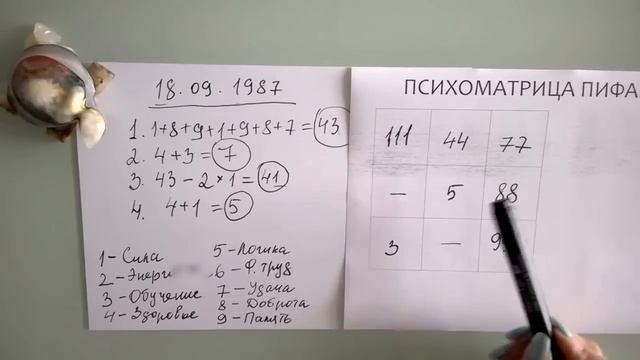 18.09.1987
1. 1+8+9+1+9+8+7=43
2. 4+3=7
3. 43-2*1=41
4. 4+1=5
1-Сила
2-Энерги
3-Обучение
4-Здоровье
5-Логика
6-Ф.труд
7-Удача
8-Доброта
9-Память
ПСИХОМАТРИЦА ПИФА
111 44 77
- 5 88
3 -